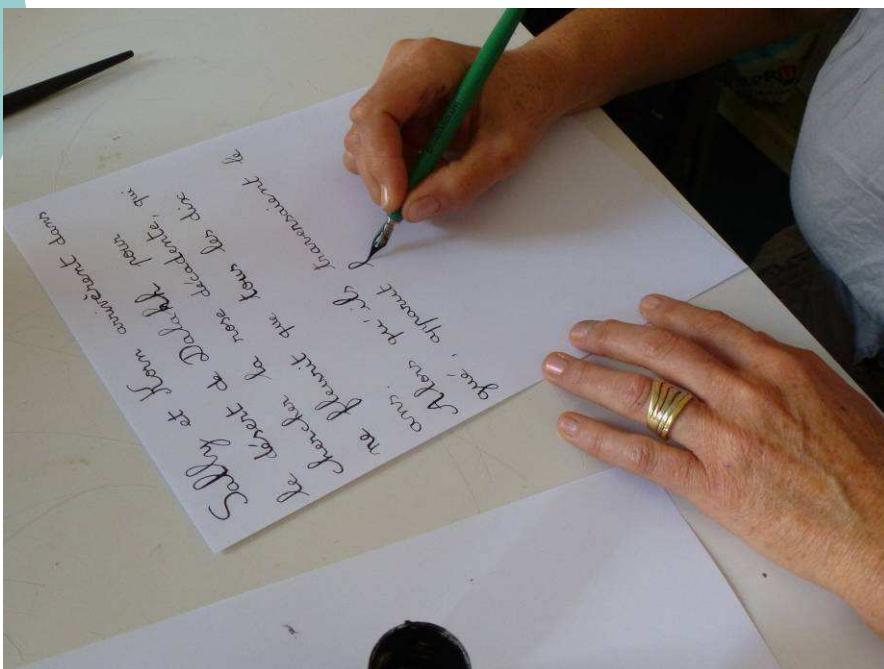 Sally et Korn arrivèrent dans
le désert de pour
chercher la rose décadente, qui
ne fleurit que tous les dix
ans.
Alors qu'ils traversaient la
gué, apparut